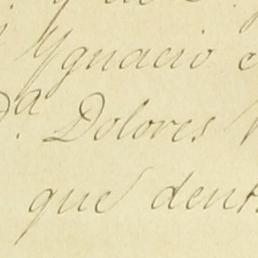 Ygnacio
Dª. Dolores
que dent